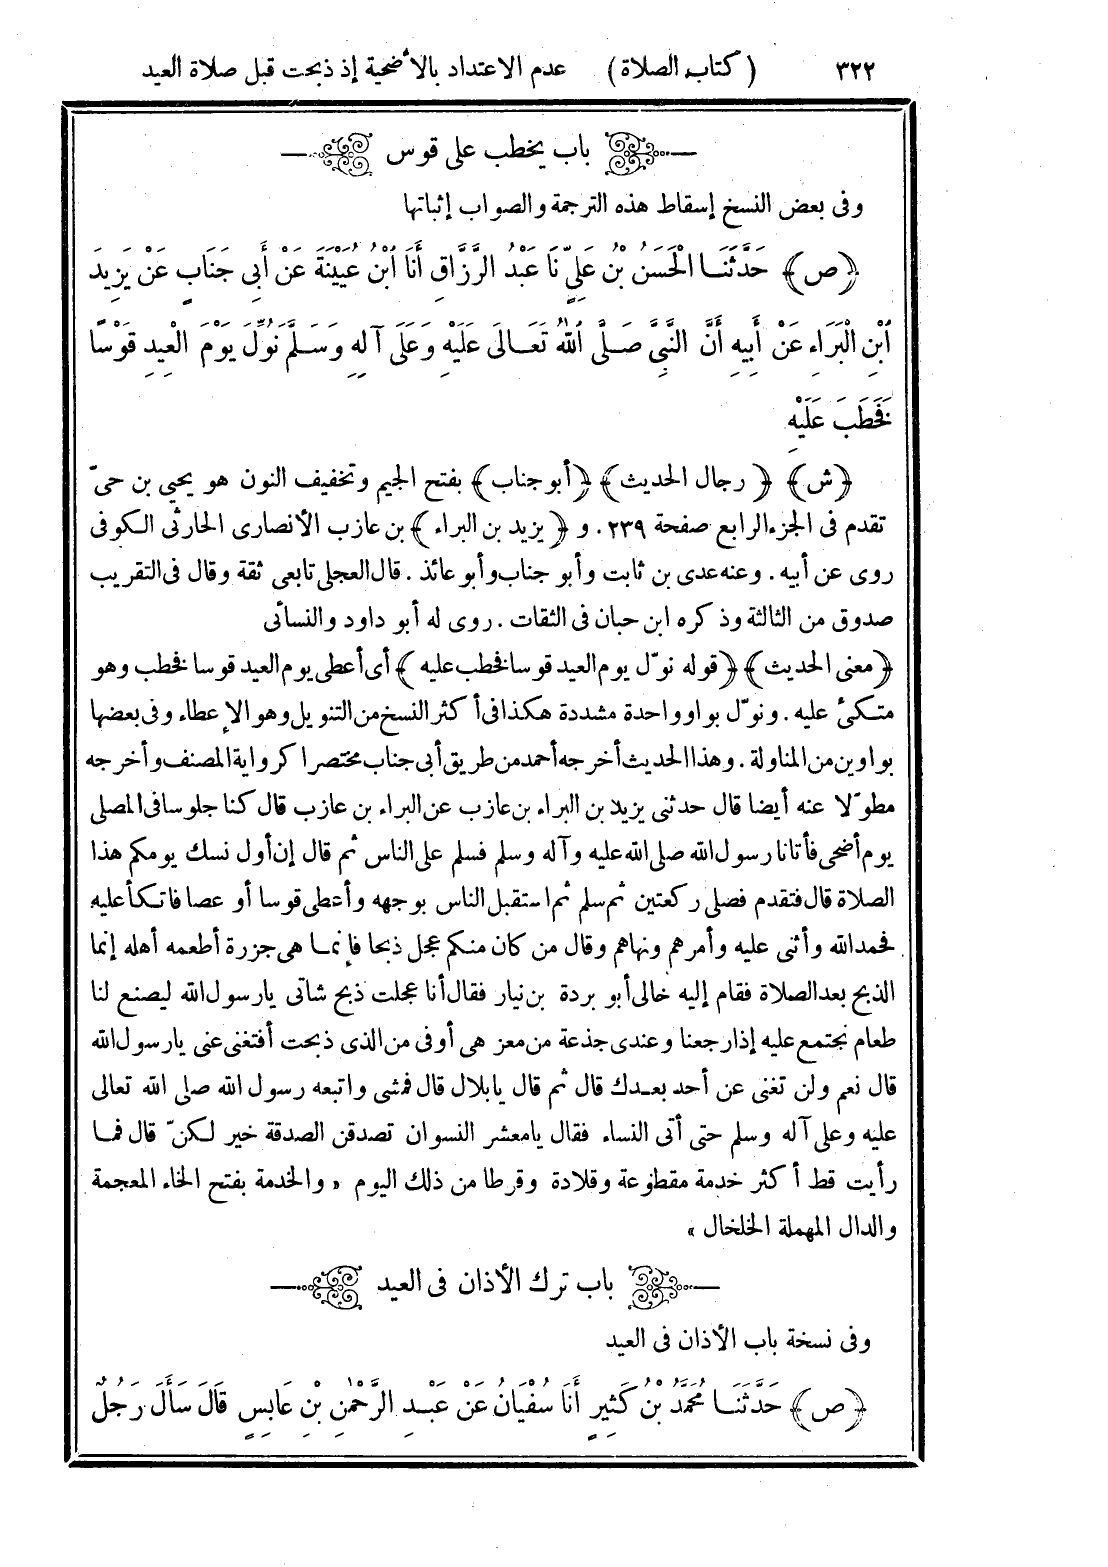 ٣٢٢ ( كتاب الصلاة ) عدم الاعتداد بالأضحية إذ ذبحت قبل صلاة العيد
باب يخطب على قوس
وفى بعض النسخ إسقاط هذه الترجمة والصواب إثباتها
﴿ص﴾ حَدَّثَنَا الْحَسَنُ بْنُ عَلِيٍّ نَا عَبْدُ الرَّزَّاقِ أَنَا ابْنُ عُيَيْنَةَ عَنْ أَبِى جَنَابٍ عَنْ يَزِيدَ
ابْنِ الْبَرَاءِ عَنْ أَبِيهِ أَنَّ النَّبِىَّ صَلَّى اللهُ تَعَالَى عَلَيْهِ وَعَلَى آلِهِ وَسَلَّمَ نُوِّلَ يَوْمَ الْعِيدِ قَوْسًا
فَخَطَبَ عَلَيْهِ
﴿ش﴾ ﴿رجال الحديث﴾ ﴿أبو جناب﴾ بفتح الجيم وتخفيف النون هو يحيى بن حىّ
تقدم فى الجزء الرابع صفحة ٢٣٩. و ﴿يزيد بن البراء﴾ بن عازب الأنصارى الحارثى الكوفى
روى عن أبيه. وعنه عدى بن ثابت وأبو جناب وأبو عائذ. قال العجلى تابعى ثقة وقال فى التقريب
صدوق من الثالثة وذكره ابن حبان فى الثقات. روى له أبو داود والنسائى
﴿معنى الحديث﴾ ﴿قوله نوّل يوم العيد قوسا فخطب عليه﴾ أى أعطى يوم العيد قوسا فخطب وهو
متكئ عليه. ونوّل بواو واحدة مشددة هكذا فى أكثر النسخ من التنويل وهو الإعطاء وفى بعضها
بواوين من المناولة. وهذا الحديث أخرجه أحمد من طريق أبى جناب مختصرا كرواية المصنف وأخرجه
مطوّلا عنه أيضا قال حدثنى يزيد بن البراء بن عازب عن البراء بن عازب قال كنا جلوسا فى المصلى
يوم أضحى فأتانا رسول الله صلى الله عليه وآله وسلم فسلم على الناس ثم قال إن أول نسك يومكم هذا
الصلاة قال فتقدم فصلى ركعتين ثم سلم ثم استقبل الناس بوجهه وأعطى قوسا أو عصا فاتكأ عليه
فحمد الله وأثنى عليه وأمرهم ونهاهم وقال من كان منكم عجل ذبحا فإنما هى جزرة أطعمه أهله إنما
الذبح بعد الصلاة فقام إليه خالى أبو بردة بن نيار فقال أنا عجلت ذبح شاتى يا رسول الله ليصنع لنا
طعام نجتمع عليه إذا رجعنا وعندى جذعة من معز هى أوفى من الذى ذبحت أفتغنى عنى يا رسول الله
قال نعم ولن تغنى عن أحد بعدك قال ثم قال يا بلال قال فمشى واتبعه رسول الله صلى الله تعالى
عليه وعلى آله وسلم حتى أتى النساء فقال يا معشر النسوان تصدقن الصدقة خير لكنّ قال فما
رأيت قط أكثر خدمة مقطوعة وقلادة وقرطا من ذلك اليوم «والخدمة بفتح الخاء المعجمة
والدال المهملة الخلخال»
باب ترك الأذان فى العيد
وفى نسخة باب الأذان فى العيد
﴿ص﴾ حَدَّثَنَا مُحَمَّدُ بْنُ كَثِيرٍ أَنَا سُفْيَانُ عَنْ عَبْدِ الرَّحْمٰنِ بْنِ عَابِسٍ قَالَ سَأَلَ رَجُلٌ